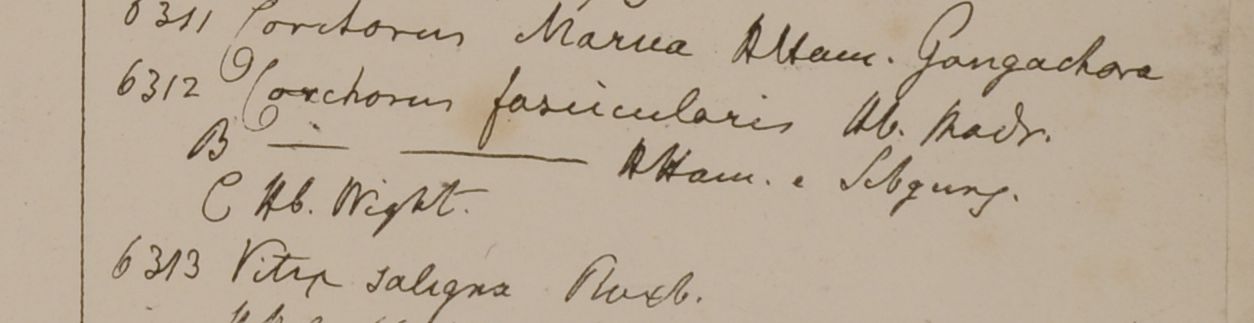 6311 Corchorus Marua HHam. Gongachora
6312 Corchorus fascicularis Hb. Madr.
B — — HHam. e
C Hb. Wight.
6313 Vitex saligna Roxb.